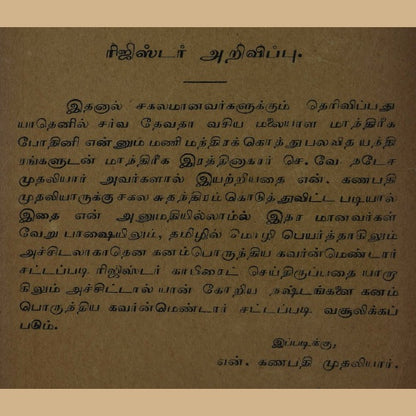 ரிஜிஸ்டர் அறிவிப்பு.
இதனால் சகலமானவர்களுக்கும் தெரிவிப்பது
யாதெனில் சர்வ தேவதா வசிய மலையாள மாந்திரீக
போதினி என்னும் மணி மந்திரக் கொத்து பலவித யந்தி
ரங்களுடன் மாந்திரீக இரத்தினாகார் செ. வே. நடேச
முதலியார் அவர்களால் இயற்றியதை என். கணபதி
முதலியாருக்கு சகல சுதந்திரம் கொடுத்துவிட்ட படியால்
இதை என் அனுமதியில்லாமல் இதர மானவர்கள்
வேறு பாஷையிலும், தமிழில் மொழி பெயர்த்தாகிலும்
அச்சிடலாகாதென கனம்பொருந்திய கவர்ன்மெண்டார்
சட்டப்படி ரிஜிஸ்டர் காபிரைட் செய்திருப்பதை யாரா
கிலும் அச்சிட்டால் யான் கோறிய நஷ்டங்களை கனம்
பொருந்திய கவர்ன்மெண்டார் சட்டப்படி வசூலிக்கப்
படும்.
இப்படிக்கு,
என். கணபதி முதலியார்.